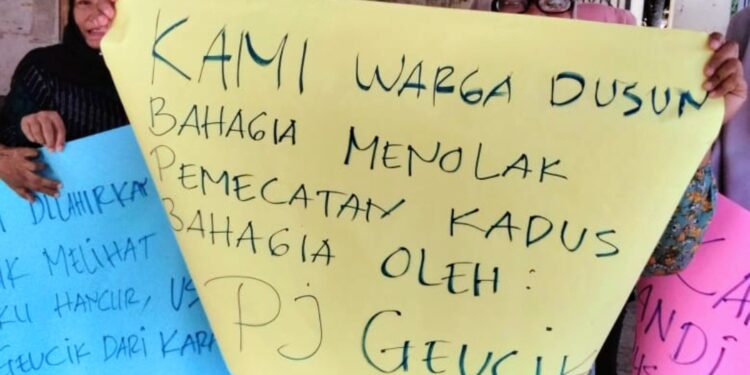 KAMI WARGA DUSUN
BAHAGIA MENOLAK
PEMECATAN KADUS
BAHAGIA OLEH :
Pj GEUCIK
DILAHIRKA
MELIHAT
HANCUR,
GEUCIK DARI